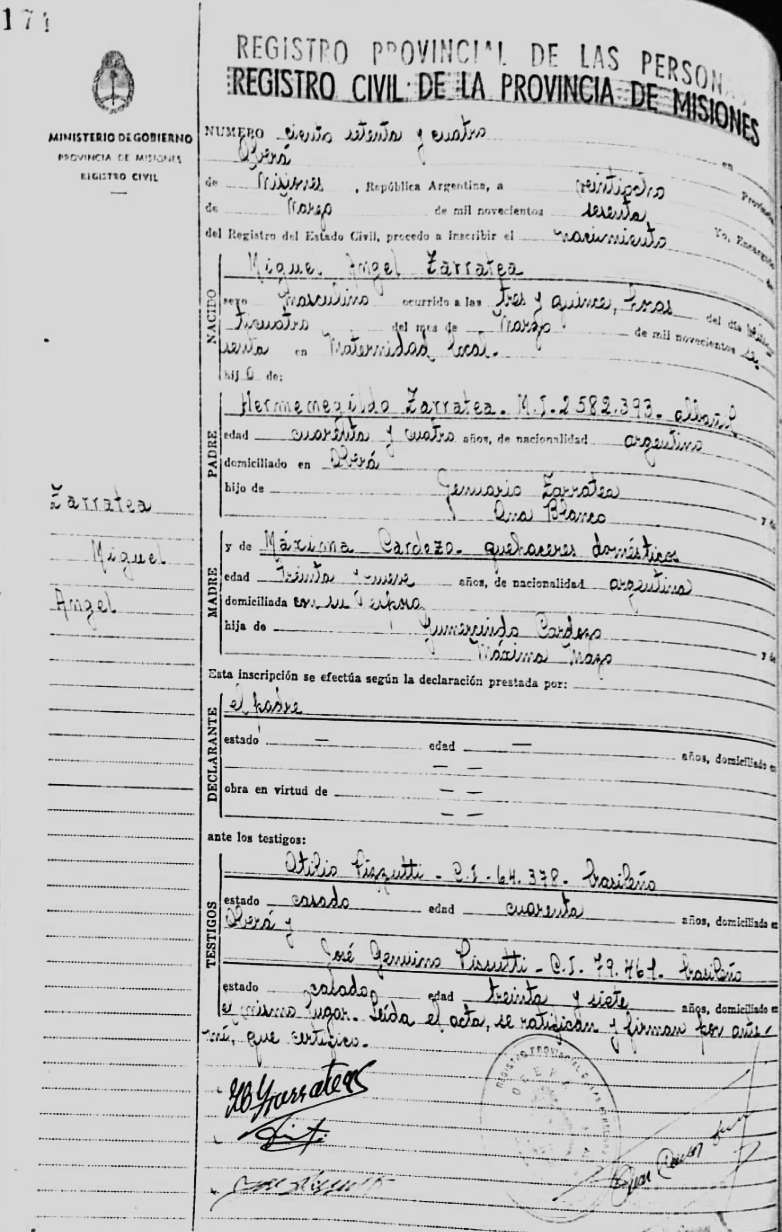 174
REGISTRO PROVINCIAL DE LAS PERSON
REGISTRO CIVIL DE LA PROVINCIA DE MISIONES
MINISTERIO DE GOBIERNO
PROVINCIA DE MISIONES
REGISTRO CIVIL
NUMERO ciento setenta y cuatro en
Oberá Provincia
de Misiones, República Argentina, a veintiocho
de Marzo de mil novecientos sesenta Yo, Encargado
del Registro del Estado Civil, procedo a inscribir el nacimiento de
NACIDO
Miguel Angel Zarratea
sexo masculino ocurrido a las tres y quince, horas del día
ticuatro del mes de Marzo de mil novecientos se
senta en Maternidad local.
hijo de:
PADRE
Hermenegildo Zarratea. M.I. 2582.393. albañil
edad cuarenta y cuatro años, de nacionalidad argentino
domiciliado en Oberá
hijo de Genuario Zarratea y de
Ana Blanco
Zarratea
Miguel
Angel
MADRE
y de Máxima Cardozo. quehaceres domésticos
edad treinta y nueve años, de nacionalidad argentina
domiciliada en su esposo
hija de Gumercindo Cardozo y de
Máxima
Esta inscripción se efectúa según la declaración prestada por:
DECLARANTE
el padre
estado — edad — años, domiciliado en
— —
obra en virtud de — —
— —
ante los testigos:
TESTIGOS
Atilio Pizzutti - C.I. 64.378. brasileño
estado casado edad cuarenta años, domiciliado en
Oberá y
José Genuino Piscutti - C.I. 79.461. brasileño
estado casado edad treinta y siete años, domiciliado en
el mismo lugar. Leída el acta, se ratifican y firman por ante
mí, que certifico.